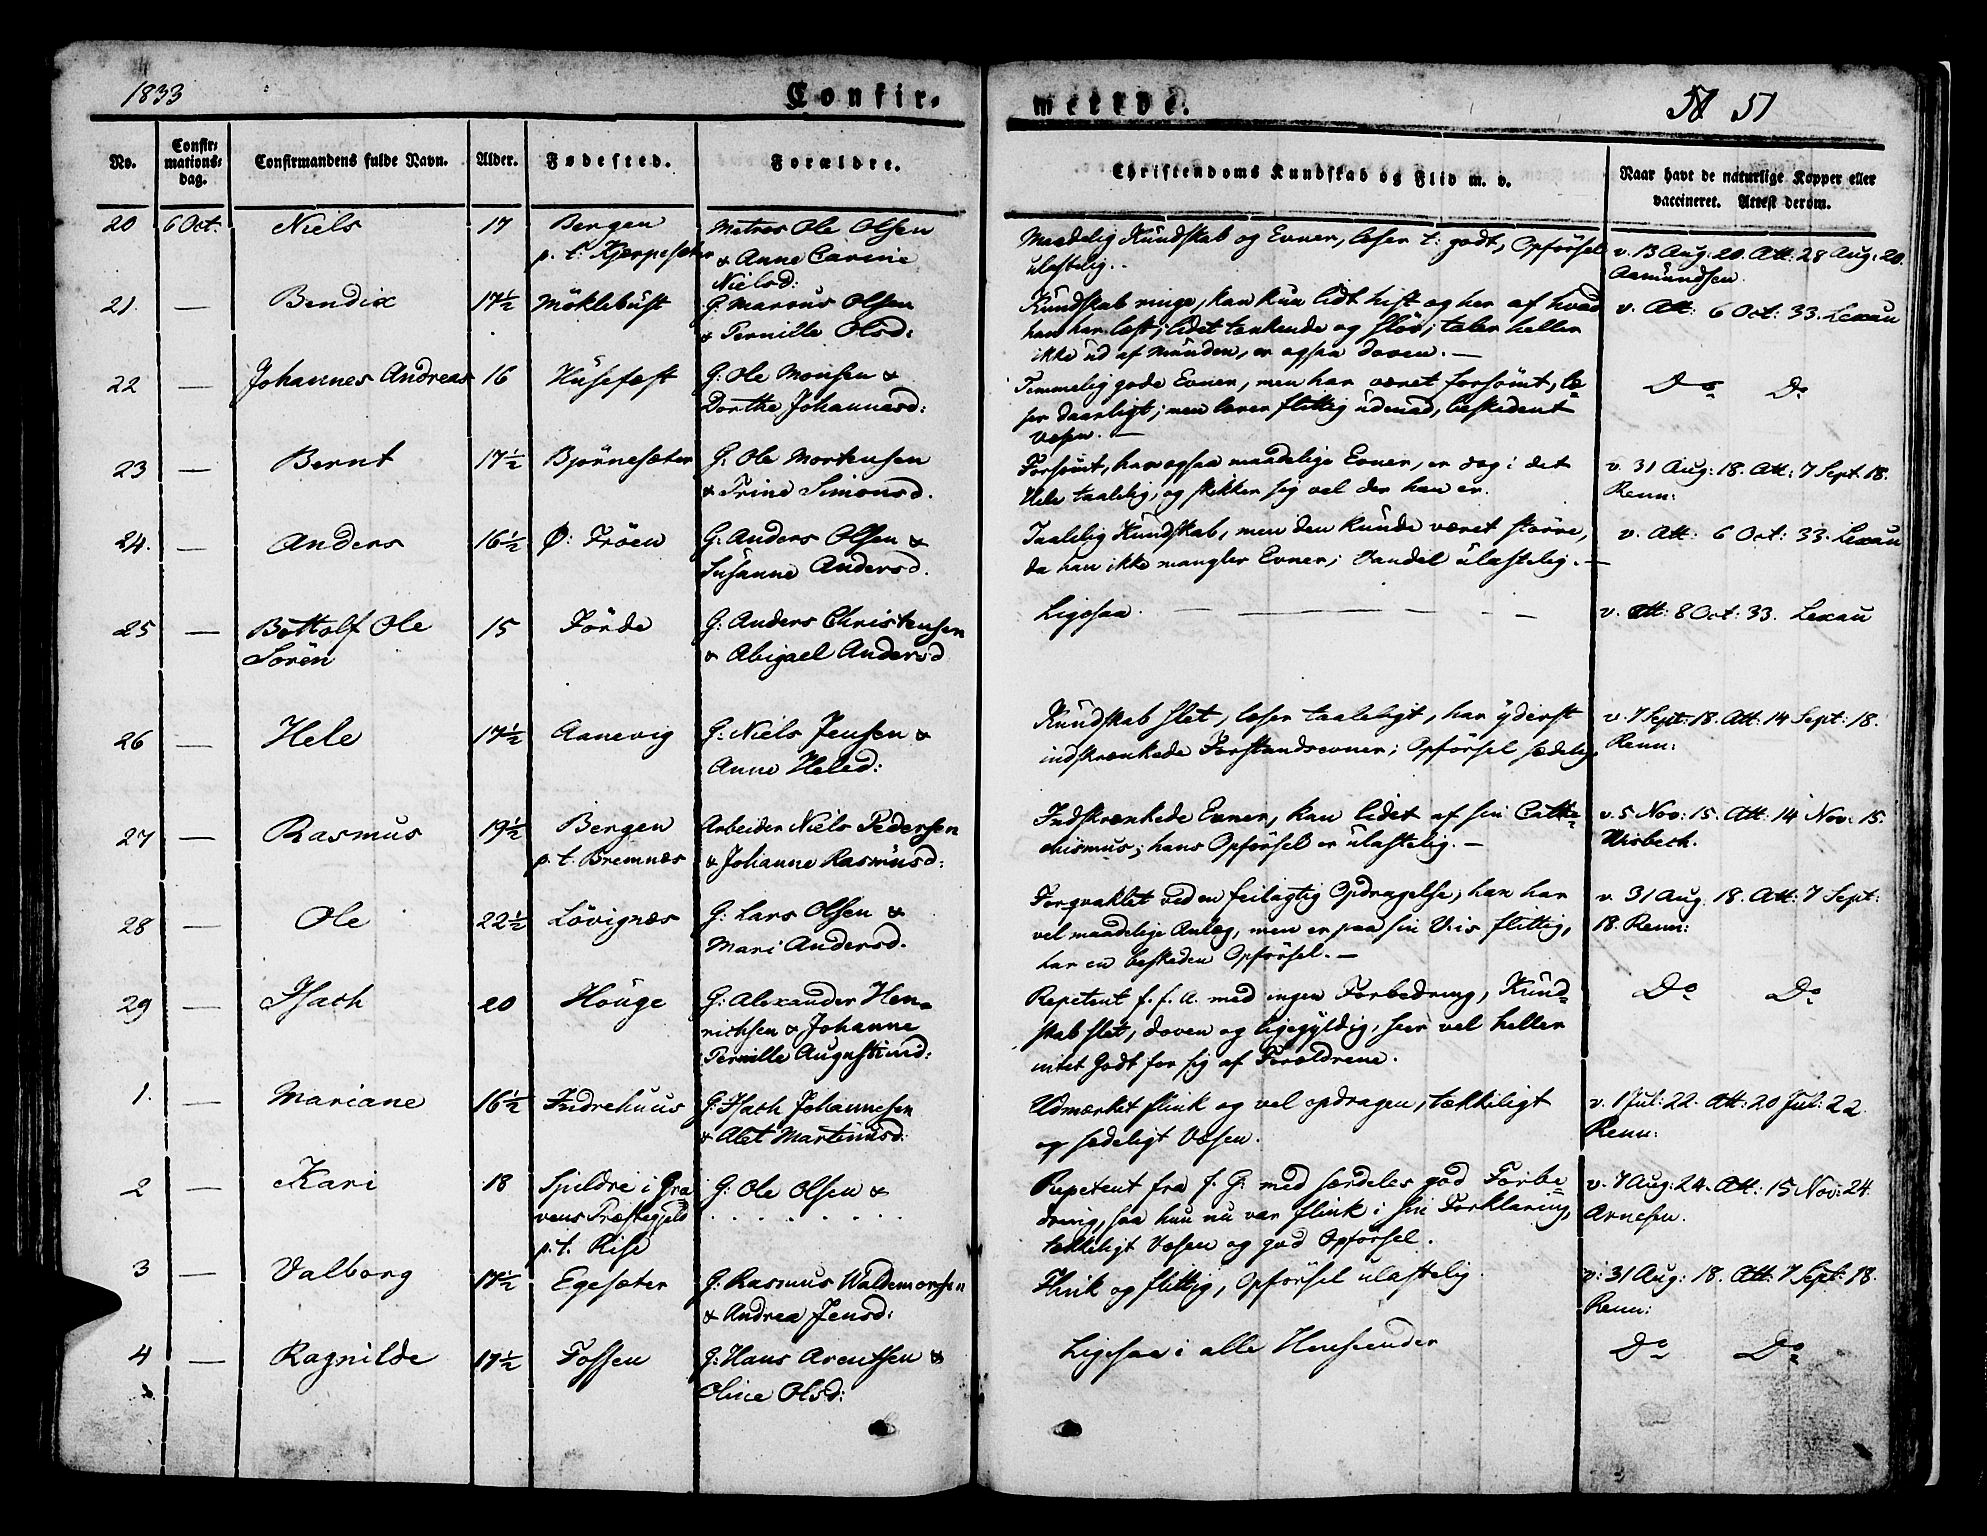 1833
Confir-
No.
Confir-
mations-
dag.
Confirmandens fulde Navn.
Alder.
Fødested.
Forældre.
20
6 Oct:
Niels
17
Bergen
p. t. Kjerpesæter
Matros Ole Olsen
& Anne Carine
Nielsd:
21.
—
Bendix
17½
Möklebust
G. Marcus Olsen
& Pernille Olsd:
22
—
Johannes Andreas
16
Husefest
G: Ole Monsen &
Dorthe Johannesd:
23
—
Bernt
17½
Björnesæter
G. Ole Mortensen
& Trine Simonsd.
24.
—
Anders
16½
Ø: Fröen
G. Anders Olsen &
Susanne Andersd.
25
—
Bottolf Ole
Sören
15
Förde
G: Anders Christensen
& Abigael Andersd
26
—
Hele
17½
Aanevig
G: Niels Jensen &
Anne Helsd:
27
—
Rasmus
19½
Bergen
p. t. Bremnæs
Arbeider Niels Pedersen
& Johanne Rasmusd:
28
—
Ole
22½
Lövignæs
G: Lars Olsen &
Mari Andersd.
29
—
Isach
20
Houge
G: Alexander Hen-
richsen & Johanne
Pernille Augustind:
1.
—
Mariane
16½
Indrehuus
G: Isach Johannesen
& Alet Martinusd:
2
—
Kari
18
Spildre i Gra-
vens Præstegjeld
p. t. Rise
G: Ole Olsen &
. . . . . . .
3
—
Valborg
17½
Egesæter
G: Rasmus Waldemorsen
& Andrea Jensd:
4
—
Ragnilde
17½
Fossen
G: Hans Arentsen &
Oline Olsd:
merede.
51
Christendoms Kundskab og Flid m. v.
Naar havt de naturlige Kopper eller
vaccineret. Attest derom.
Maadelig Kundskab og Evner, læser t: godt, Opförsel
ulastelig.
v. 13 Aug: 20. Att: 28 Aug: 20.
Aamundsen.
Kundskab ringe, kan kun lidt hist og her af hvad
han har læst; lidet tænkende og slöv; taler heller
ikke ud af Munden, er ogsaa doven. —
v. Att: 6 Oct: 33. Lexau
Temmelig gode Evner, men har været forsömt, læ-
ser daarligt; men lærer flittig udenad, beskedent
Væsen. —
Do Do
Forsömt, har ogsaa maadelige Evner, er dog i det
Hele taalelig, og skikker sig vel der han er.
v. 31 Aug: 18. Att: 7 Sept: 18.
Renn:
Taalelig Kundskab, men den kunde været större,
da han ikke mangler Evner; Vandel ulastelig. —
v. Att: 6 Oct: 33. Lexau
Ligesaa. — — — —
v. Att: 8 Oct: 33. Lexau
Kundskab slet, læser taaleligt, har yderst
indskrænkede Forstandsevner; Opförsel sædelig,
v. 7 Sept: 18. Att: 14 Sept: 18.
Renn:
Indskrænkede Evner, kan lidet af sin Cathe-
chismus; hans Opförsel er ulastelig. —
v. 5 Nov: 15. Att: 14 Nov: 15.
Wisbech.
Forqvaklet ved en feilagtig Opdragelse, han har
vel maadelige Anlæg, men er paa sin Viis flittig,
har en beskeden Opförsel. —
v. 31 Aug. 18. Att: 7 Sept:
18. Renn:
Repetent f. f. A. med ingen Forbedring, Kund-
skab slet, doven og ligegyldig, seer vel heller
intet Godt for sig af Forældrene.
Do Do
Udmærket flink og vel opdragen, tækkeligt
og sædeligt Væsen.
v. 1 Jul: 22. Att: 20 Jul: 22.
Renn:
Repetent fra f. G: med særdeles god Forbe-
dring, saa hun nu var flink i sin Forklaring,
tækkeligt Væsen og god Opförsel.
v. 7 Aug: 24. Att: 15 Nov: 24.
Arnesen.
Flink og flittig, Opförsel ulastelig.
v: 31 Aug: 18. Att: 7 Sept: 18.
Renn:
Ligesaa i alle Henseender
Do Do